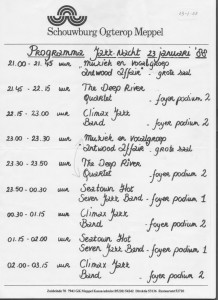 Schouwburg Ogterop Meppel
Programma Jazz-Nacht 23 januari '88
21.00 - 21.45 uur "Muziek en Vocalgroep
Antwood Affair" grote zaal
21.45 - 22.15 uur The Deep River
Quartet - foyer podium 2
22.15 - 23.00 uur Climax Jazz
Band - foyer podium 1
23.00 - 23.30 uur "Muziek en Vocalgroep
Antwood Affair" - grote zaal
23.30 - 23.50 uur The Deep River
Quartet - foyer podium 2
23.50 - 00.30 uur Seatown Hot
Seven Jazz Band - foyer podium 1
00.30 - 01.15 uur Climax Jazz
Band - foyer podium 2
01.15 - 02.00 uur Seatown Hot
Seven Jazz Band - foyer podium 1
02.00 - 03.15 uur Climax Jazz
Band - foyer podium 2